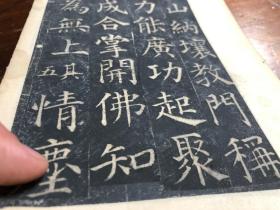 山納壤教門稱
力能廣功起聚
成合掌開佛知
為無上其五情塵